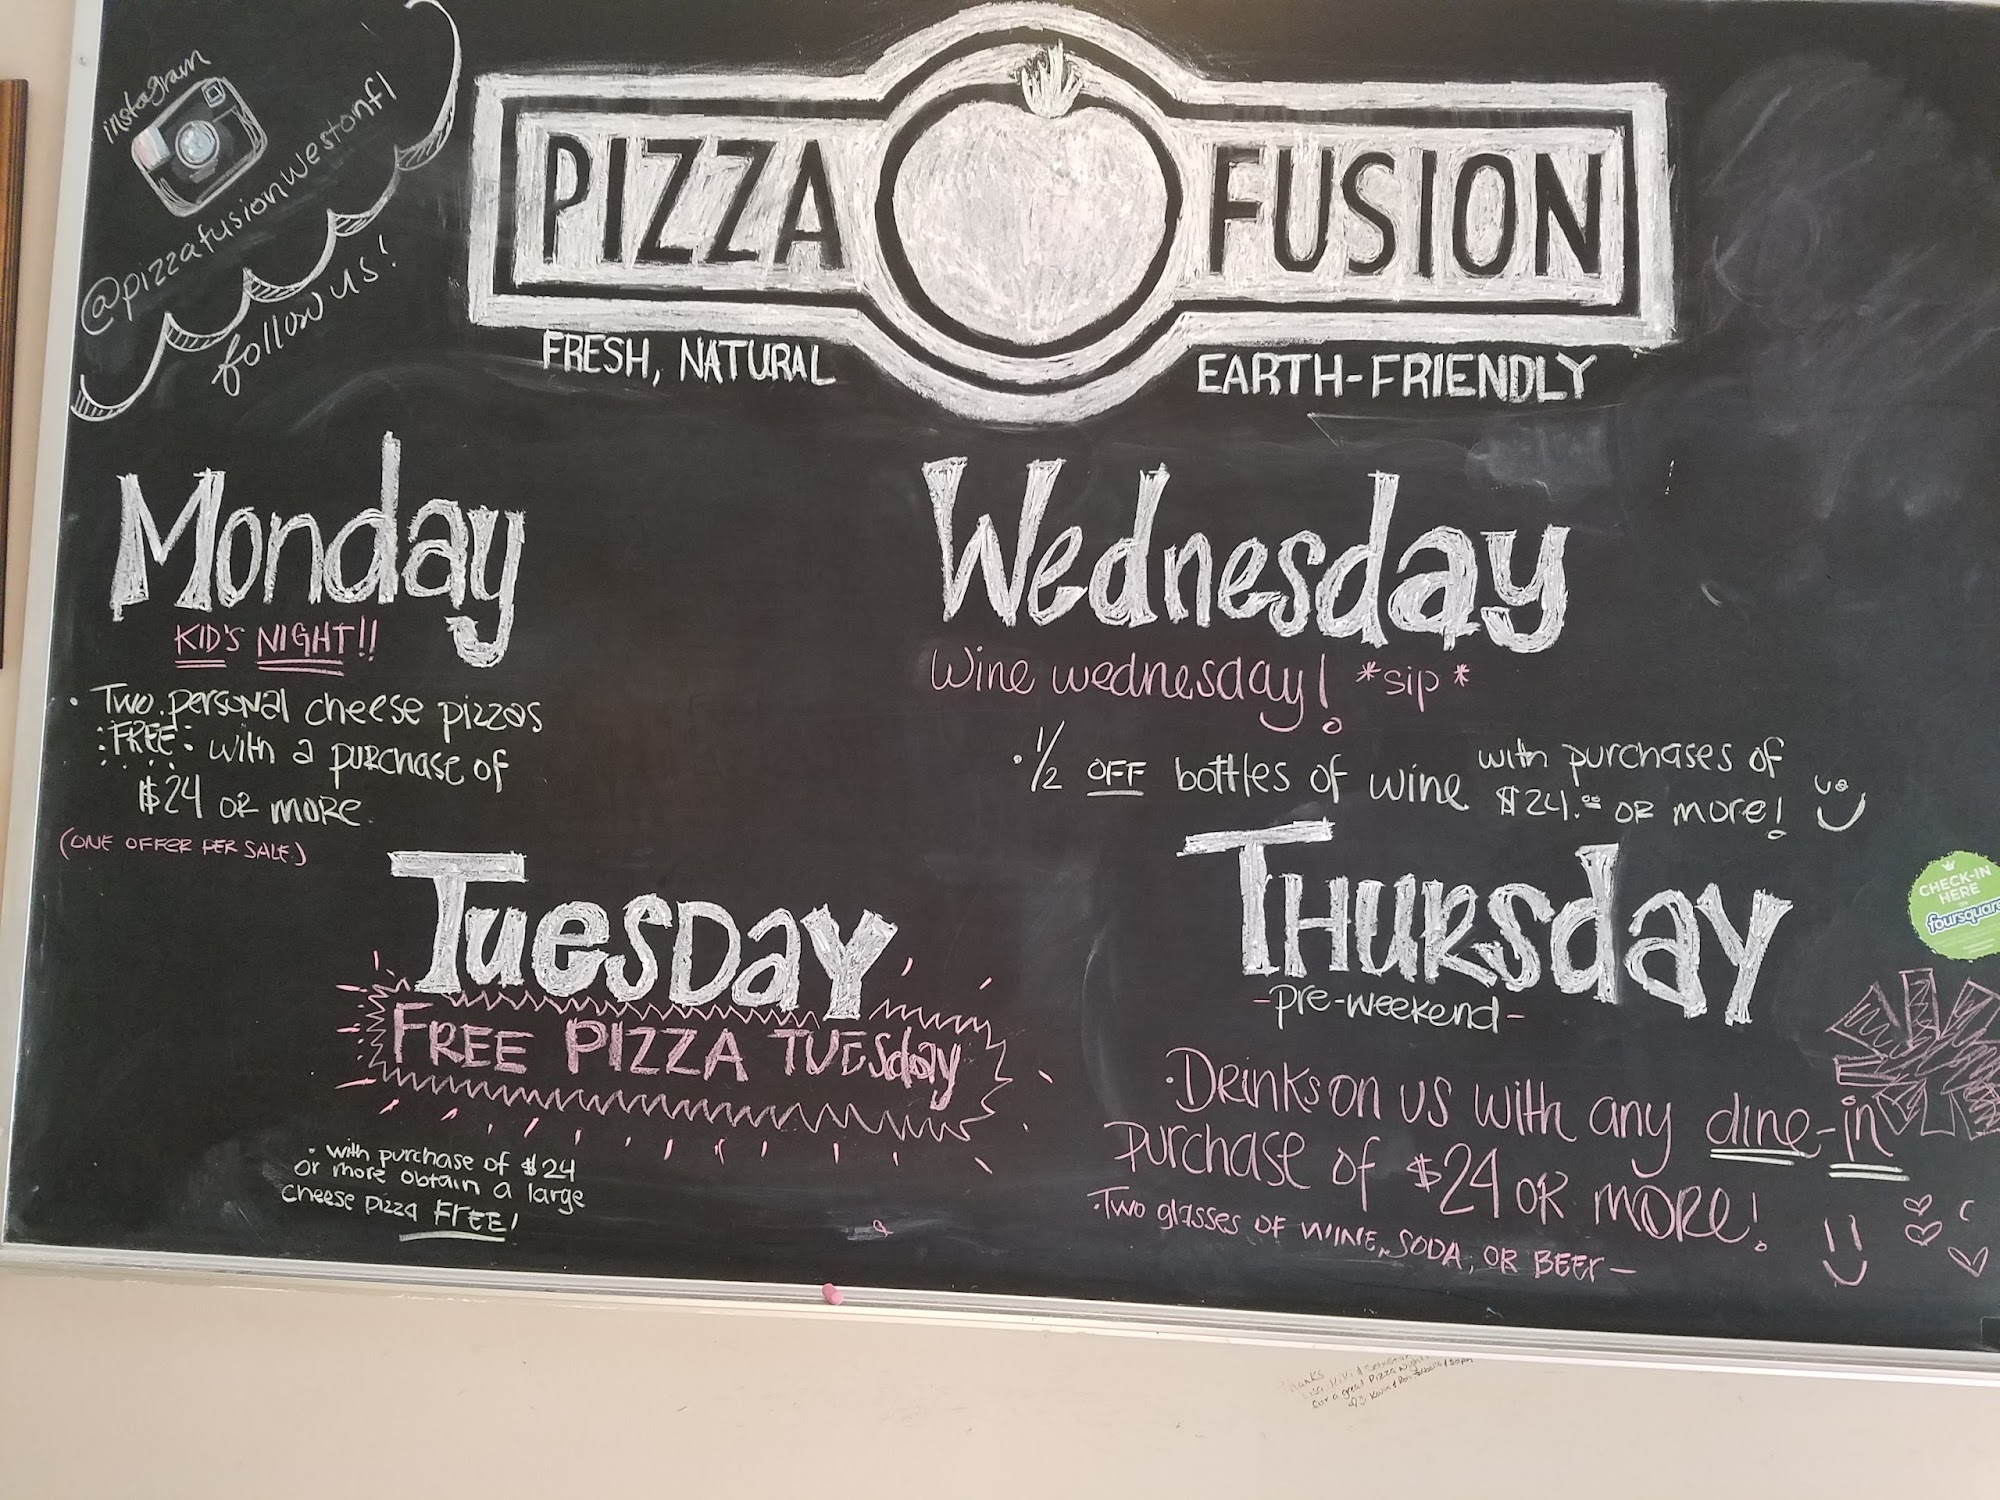 instagram
@pizzafusionwestonfl
follow us!
PIZZA FUSION
FRESH, NATURAL EARTH-FRIENDLY
Monday
KID'S NIGHT!!
• Two personal cheese pizzas
FREE with a purchase of
$24 or more.
(ONE OFFER PER SALE.)
Tuesday
FREE PIZZA TUESday
• with purchase of $24
or more obtain a large
cheese pizza FREE!
Wednesday
Wine wednesday! *sip*
• 1/2 OFF bottles of wine with purchases of
$24.00 or more!
THURSday
-pre-weekend-
• Drinks on us with any dine-in
purchase of $24 or more!
• Two glasses of WINE, SODA, OR BEER —
CHECK-IN
HERE
ON
foursquare
Thanks
for a great Pizza Night